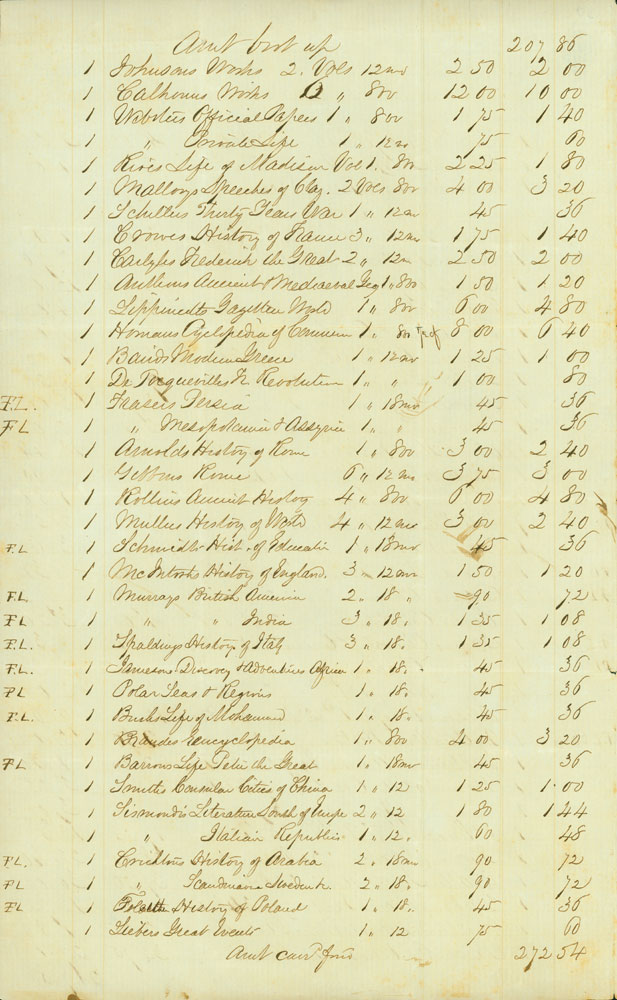 Amt brot up 207 86
1 Johnsons Works 2. Vols 12mo 2 50 2 00
1 Calhouns Works " 8vo 12 00 10 00
1 Websters Official Papers 1 " 8vo 1 75 1 40
1 " Private Life 1 " 12mo 75 60
1 Rives Life of Madison Vol 1. 8vo 2 25 1 80
1 Mallorys Speeches of Clay. 2 Vols 8vo 4 00 3 20
1 Schillers Thirty Years War 1 " 12mo 45 36
1 Crowes History of France 3 " 12mo 1 75 1 40
1 Carlyles Frederick the Great 2 " 12m 2 50 2 00
1 Anthons Ancient & Mediaeval Geg 1 " 8vo 1 50 1 20
1 Lippincotts Gazetteer World 1 " 8vo 6 00 4 80
1 Homans Cyclopedia of Commerce 1 " 8vo 8 00 6 40
1 Bairds Modern Greece 1 " 12mo 1 25 1 00
1 De Tocquevilles Fr Revolution 1 " " 1 00 80
F.L. 1 Frasers Persia 1 " 18mo 45 36
F L 1 " Mesopotamia & Assyria 1 " " 45 36
1 Arnolds History of Rome 1 " 8vo 3 00 2 40
1 Gibbons Rome 6 " 12mo 3 75 3 00
1 Rollins Ancient History 4 " 8vo 6 00 4 80
1 Mullers History of World 4 " 12mo 3 00 2 40
F.L 1 Schmidts Hist. of Educatin 1 " 18mo 45 36
1 McIntoshs History of England. 3 " 12mo 1 50 1 20
F.L 1 Murrays British America 2 " 18 " 90 72
F.L 1 " " India 3 " 18 " 1 35 1 08
F.L. 1 Spaldings History of Italy 3 " 18 " 1 35 1 08
F.L. 1 Jamesons Discovery & Adventures Africa 1 " 18 " 45 36
F L 1 Polar Seas & Regions 1 " 18 " 45 36
F.L. 1 Bushs Life of Mohammed 1 " 18 " 45 36
1 Brandes Encyclopedia 1 " 8vo 4 00 3 20
F L 1 Barrows Life Peter the Great 1 " 18mo 45 36
1 Smiths Consular Cities of China 1 " 12 1 25 1.00
1 Sismondis Literature South of Europe 2 " 12 1 80 1 44
1 " Italian Republics 1 " 12 " 60 48
F.L. 1 Crichtons History of Arabia 2 " 18mo 90 72
F L 1 " Scandinavia 2 " 18 " 90 72
F L 1 History of Poland 1 " 18 " 45 36
1 Liebers Great Events 1 " 12 75 60
Amt card ford 272 54